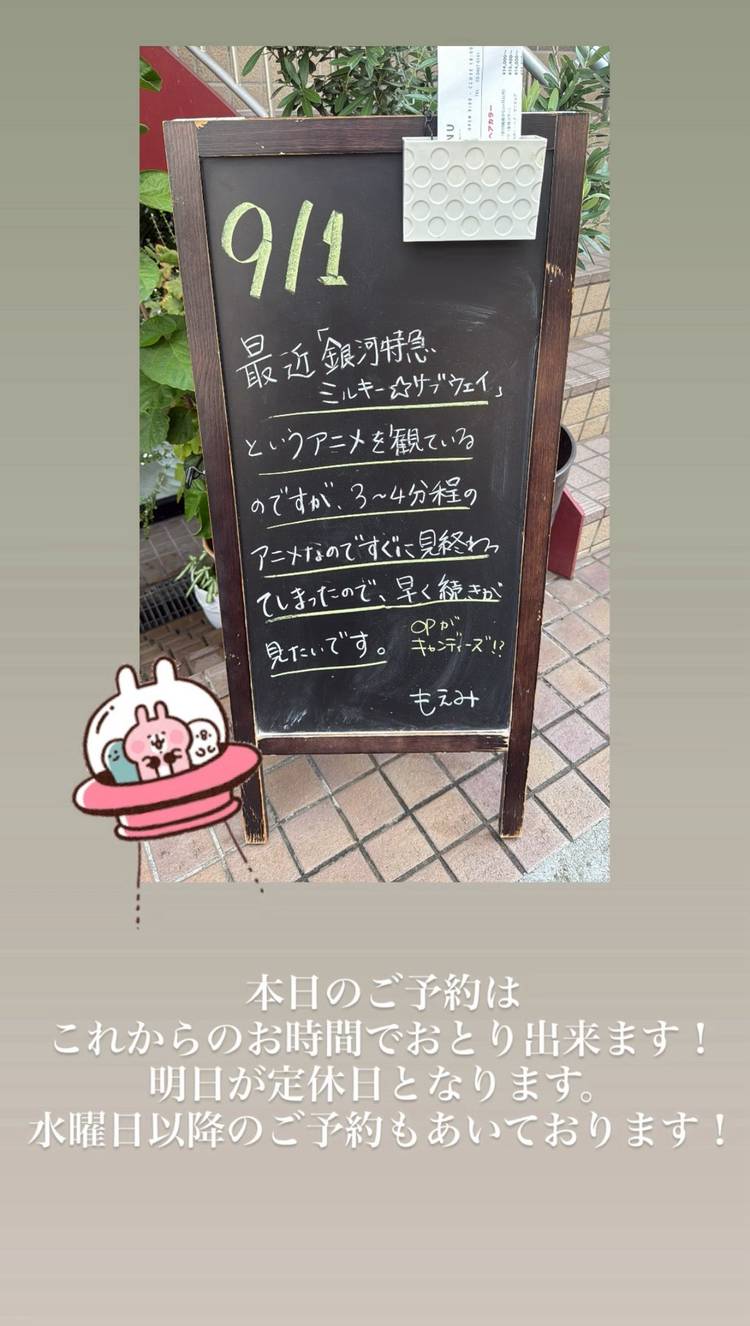 ヘアカラー
9/1
最近「銀河特急、
ミルキー☆サブウェイ」
というアニメを観ている
のですが、3〜4分程の
アニメなのですぐに見終わっ
てしまったので、早く続きが
見たいです。
OPが
キャンディーズ!?
もえみ
本日のご予約は
これからのお時間でおとり出来ます！
明日が定休日となります。
水曜日以降のご予約もあいております！